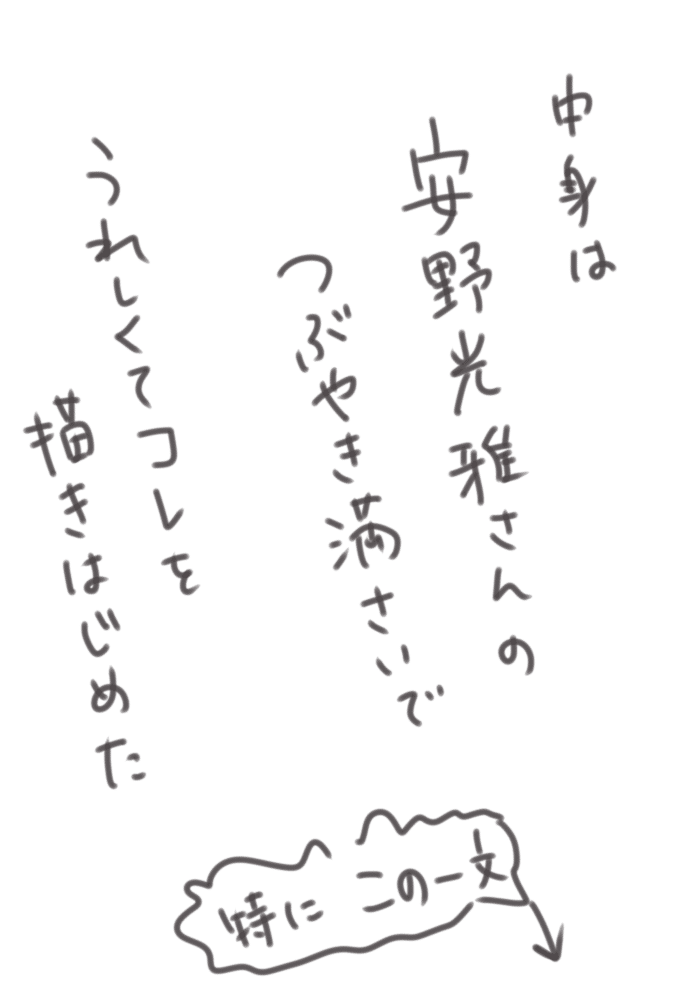 中身は
安野光雅さんの
つぶやき満さいで
うれしくてコレを
描きはじめた
特にこの一文